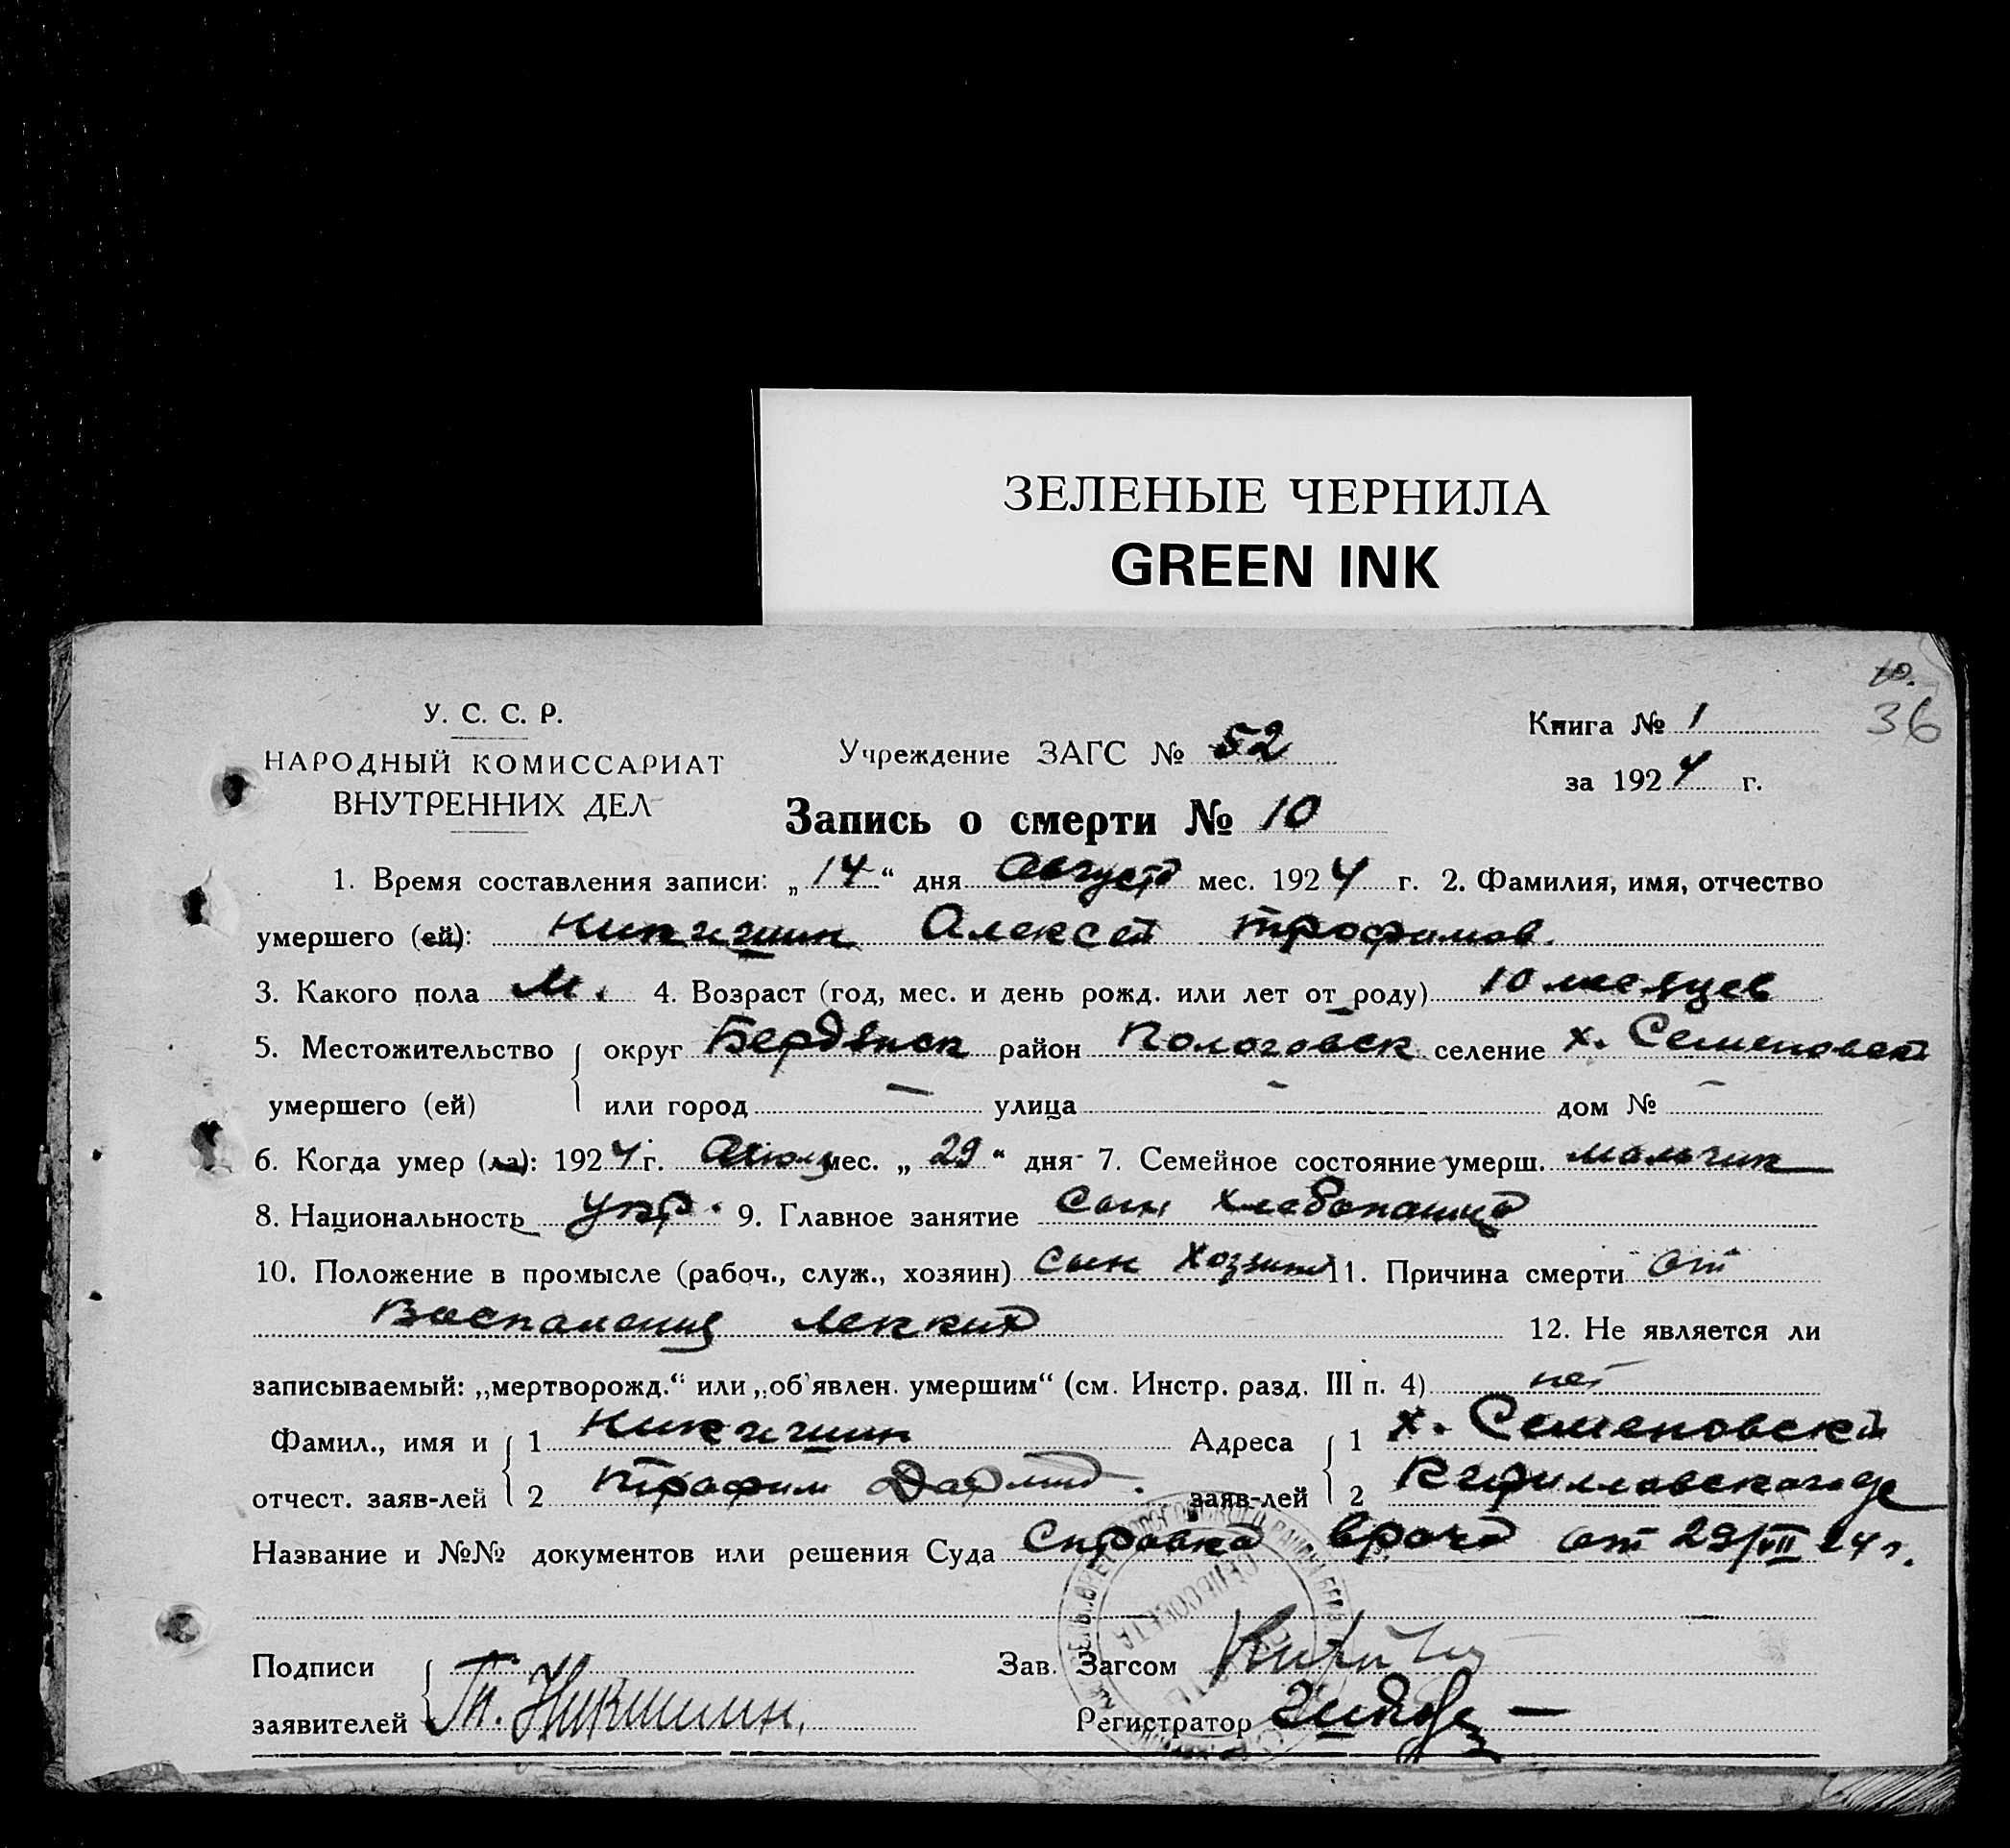 ЗЕЛЕНЫЕ ЧЕРНИЛА
GREEN INK
36
У. С. С. Р.
НАРОДНЫЙ КОМИССАРИАТ
ВНУТРЕННИХ ДЕЛ
Учреждение ЗАГС № 52
Книга № 1
за 1924 г.
Запись о смерти № 10
1. Время составления записи: „14“ дня Августа мес. 1924 г. 2. Фамилия, имя, отчество
умершего (ей): Никишин Алексей Трофимов.
3. Какого пола М. 4. Возраст (год, мес. и день рожд. или лет от роду) 10 месяцев
5. Местожительство округ Бердянск район Пологовск селение х. Семеновск
умершего (ей) или город — улица — дом № —
6. Когда умер (ла): 1924 г. Июля мес. „29“ дня 7. Семейное состояние умерш. мальчик
8. Национальность укр. 9. Главное занятие сын хлебопашца
10. Положение в промысле (рабоч., служ., хозяин) сын хозяина 11. Причина смерти от
Воспаления легких 12. Не является ли
записываемый: „мертворожд.“ или „об'явлен. умершим“ (см. Инстр. разд. III п. 4) нет
Фамил., имя и 1 Никишин Адреса 1 х. Семеновский
отчест. заяв-лей 2 Трофим заяв-лей 2
Название и №№ документов или решения Суда Справка врача от 29/VII 24 г.
СЕЛЬСОВЕТА
Подписи Зав. Загсом
заявителей Тр. Никишин. Регистратор